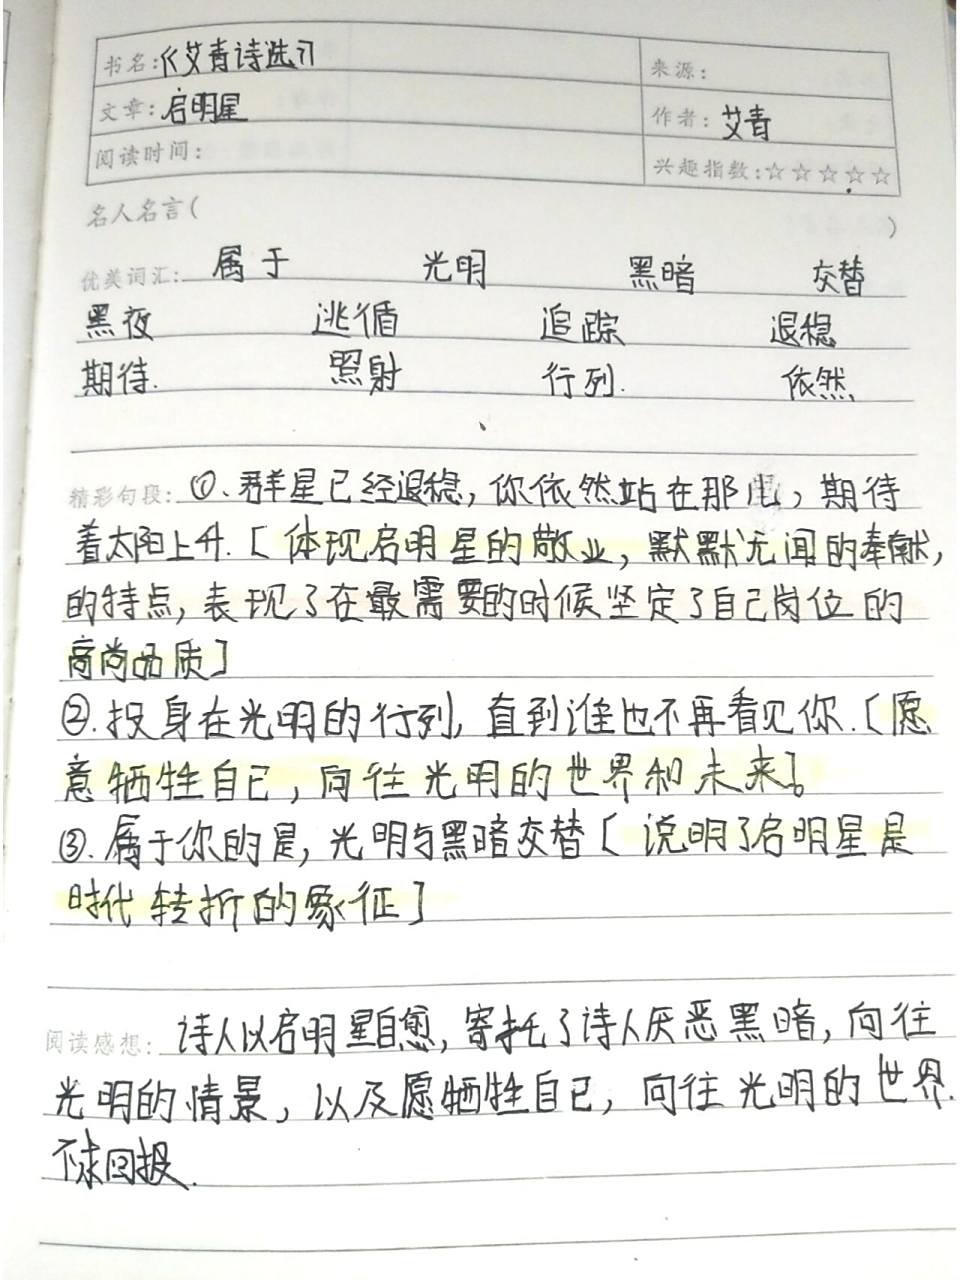 书名:《艾青诗选》 来源:
文章: 启明星 作者: 艾青
阅读时间: 兴趣指数:☆☆☆☆☆
名人名言( )
优美词汇: 属于 光明 黑暗 交替
黑夜 逃循 追踪 退稳
期待. 照射 行列. 依然.
精彩句段: ①.群星已经退稳,你依然站在那里,期待
着太阳上升.[体现启明星的敬业,默默无闻的奉献,
的特点,表现了在最需要的时候坚定了自己岗位的
高尚品质]
②.投身在光明的行列,直到谁也不再看见你.[愿
意牺牲自己,向往光明的世界和未来]。
③.属于你的是,光明与黑暗交替[说明了启明星是
时代转折的象征]
阅读感想: 诗人以启明星自愈,寄托了诗人厌恶黑暗,向往
光明的情景,以及愿牺牲自己,向往光明的世界.
不求回报.